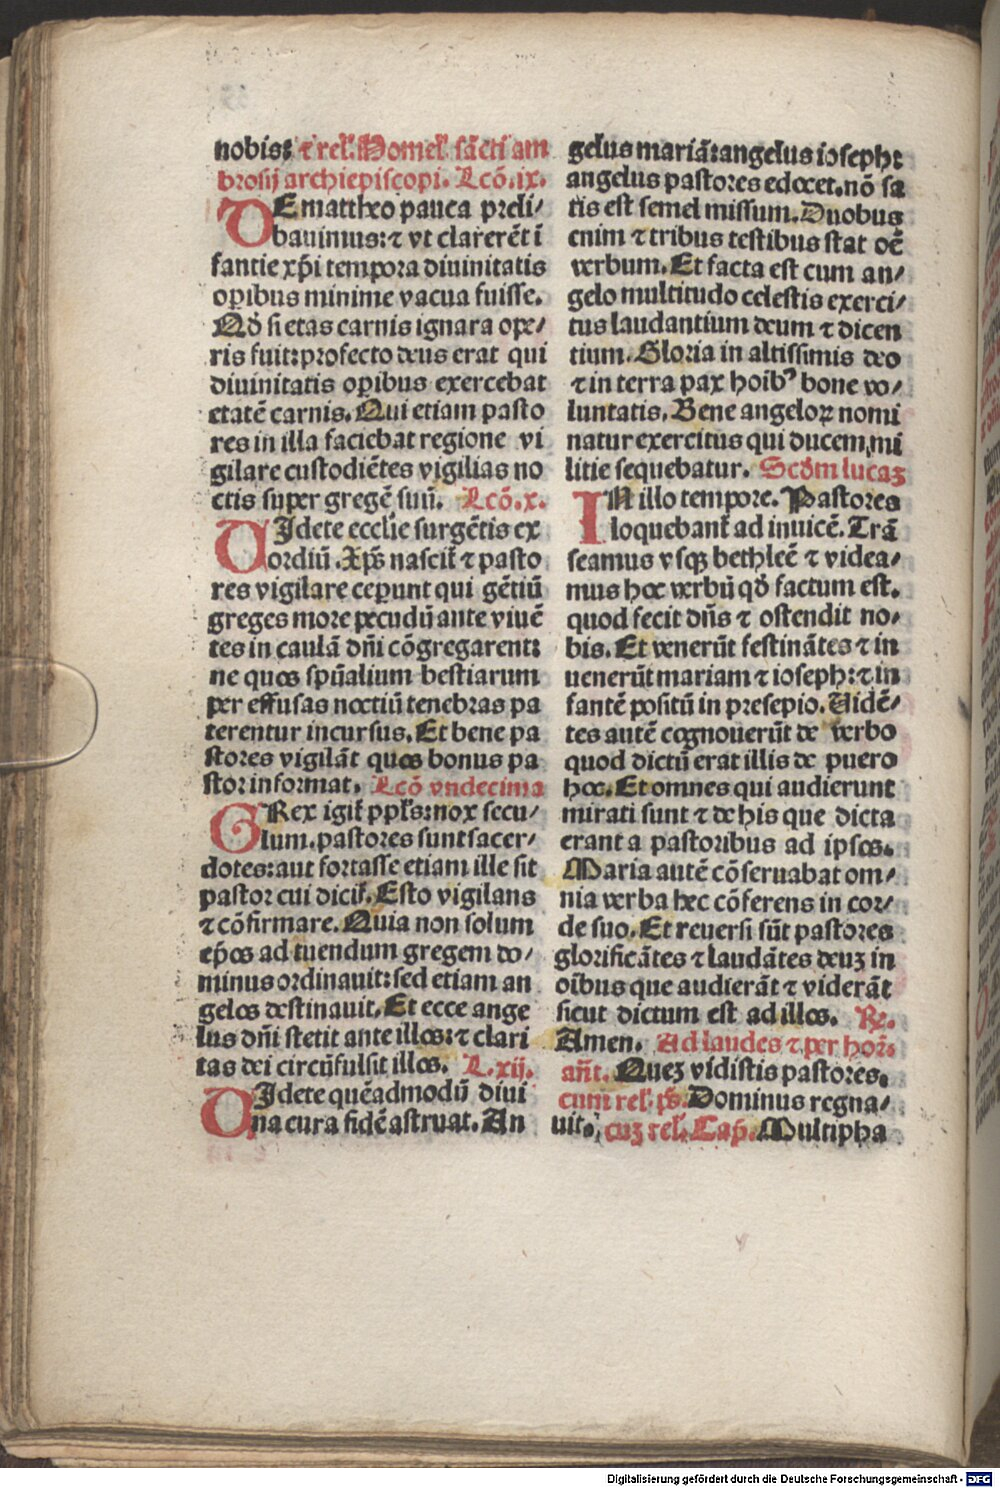 nobis: ⁊ rel̃. Homel̃ sãcti am
brosij archiepiscopi. Lcõ. ix.
DE mattheo pauca preli/
bauimus: ⁊ vt clarerẽt ĩ
fantie xp̃i tempora diuinitatis
oꝑibus minime vacua fuisse.
Qđ si etas carnis ignara ope/
ris fuit: profecto deus erat qui
diuinitatis oꝑibus exercebat
etatẽ carnis. Qui etiam pasto
res in illa faciebat regione vi
gilare custodiẽtes vigilias no
ctis super gregẽ suũ. Lcõ. x.
VIdete ecclie surgẽtis ex
ordiũ. Xp̃s nascit̃ ⁊ pasto
res vigilare ceꝑunt qui gẽtiũ
greges more pecudũ ante viuẽ
tes in caulã dñi cõgregarent:
ne quos spũalium bestiarum
per effusas noctiũ tenebras pa
terentur incursus. Et bene pa
stores vigilãt quos bonus pa
stor informat. Lcõ vndecima
GRex igit̃ ppl̃s: nox secu/
lum. pastores sunt sacer/
dotes: aut fortasse etiam ille sit
pastor cui dicit̃. Esto vigilans
⁊ cõfirmare. Quia non solum
ep̃os ad tuendum gregem do/
minus ordinauit: sed etiam an
gelos destinauit. Et ecce ange
lus dñi stetit ante illos: ⁊ clari
tas dei circũfulsit illos. L. xij.
VIdete quẽadmodũ diui
na cura fidẽ astruat. An
gelus mariã: angelus ioseph:
angelus pastores edocet. nõ sa
tis est semel missum. Duobus
enim ⁊ tribus testibus stat oẽ
verbum. Et facta est cum an/
gelo multitudo celestis exerci/
tus laudantium deum ⁊ dicen
tium. Gloria in altissimis deo
⁊ in terra pax hoibꝰ bone vo/
luntatis. Bene angeloꝝ nomi
natur exercitus qui ducem mi
litie sequebatur. Scđm lucaꝫ
IN illo tempore. Pastores
loquebant̃ ad inuicẽ. Trã
seamus vsqꝫ bethleẽ ⁊ videa/
mus hoc verbũ qđ factum est.
quod fecit dñs ⁊ ostendit no/
bis. Et venerũt festinãtes ⁊ in
uenerũt mariam ⁊ ioseph: ⁊ in
fantẽ positũ in presepio. Vidẽ/
tes autẽ cognouerũt de verbo
quod dictũ erat illis de puero
hoc. Et omnes qui audierunt
mirati sunt ⁊ de his que dicta
erant a pastoribus ad ipsos.
Maria autẽ cõseruabat om/
nia verba hec cõferens in cor/
de suo. Et reuersi sũt pastores
glorificãtes ⁊ laudãtes deuꝫ in
oĩbus que audierãt ⁊ viderãt
sicut dictum est ad illos. ℟.
Amen. Ad laudes ⁊ per hoꝛ.
añt. Queꝫ vidistis pastores.
cum rel̃. ps̃. Dominus regna/
uit. cuꝫ rel̃. Cap̃. Multipha
Digitalisierung gefördert durch die Deutsche Forschungsgemeinschaft - DFG